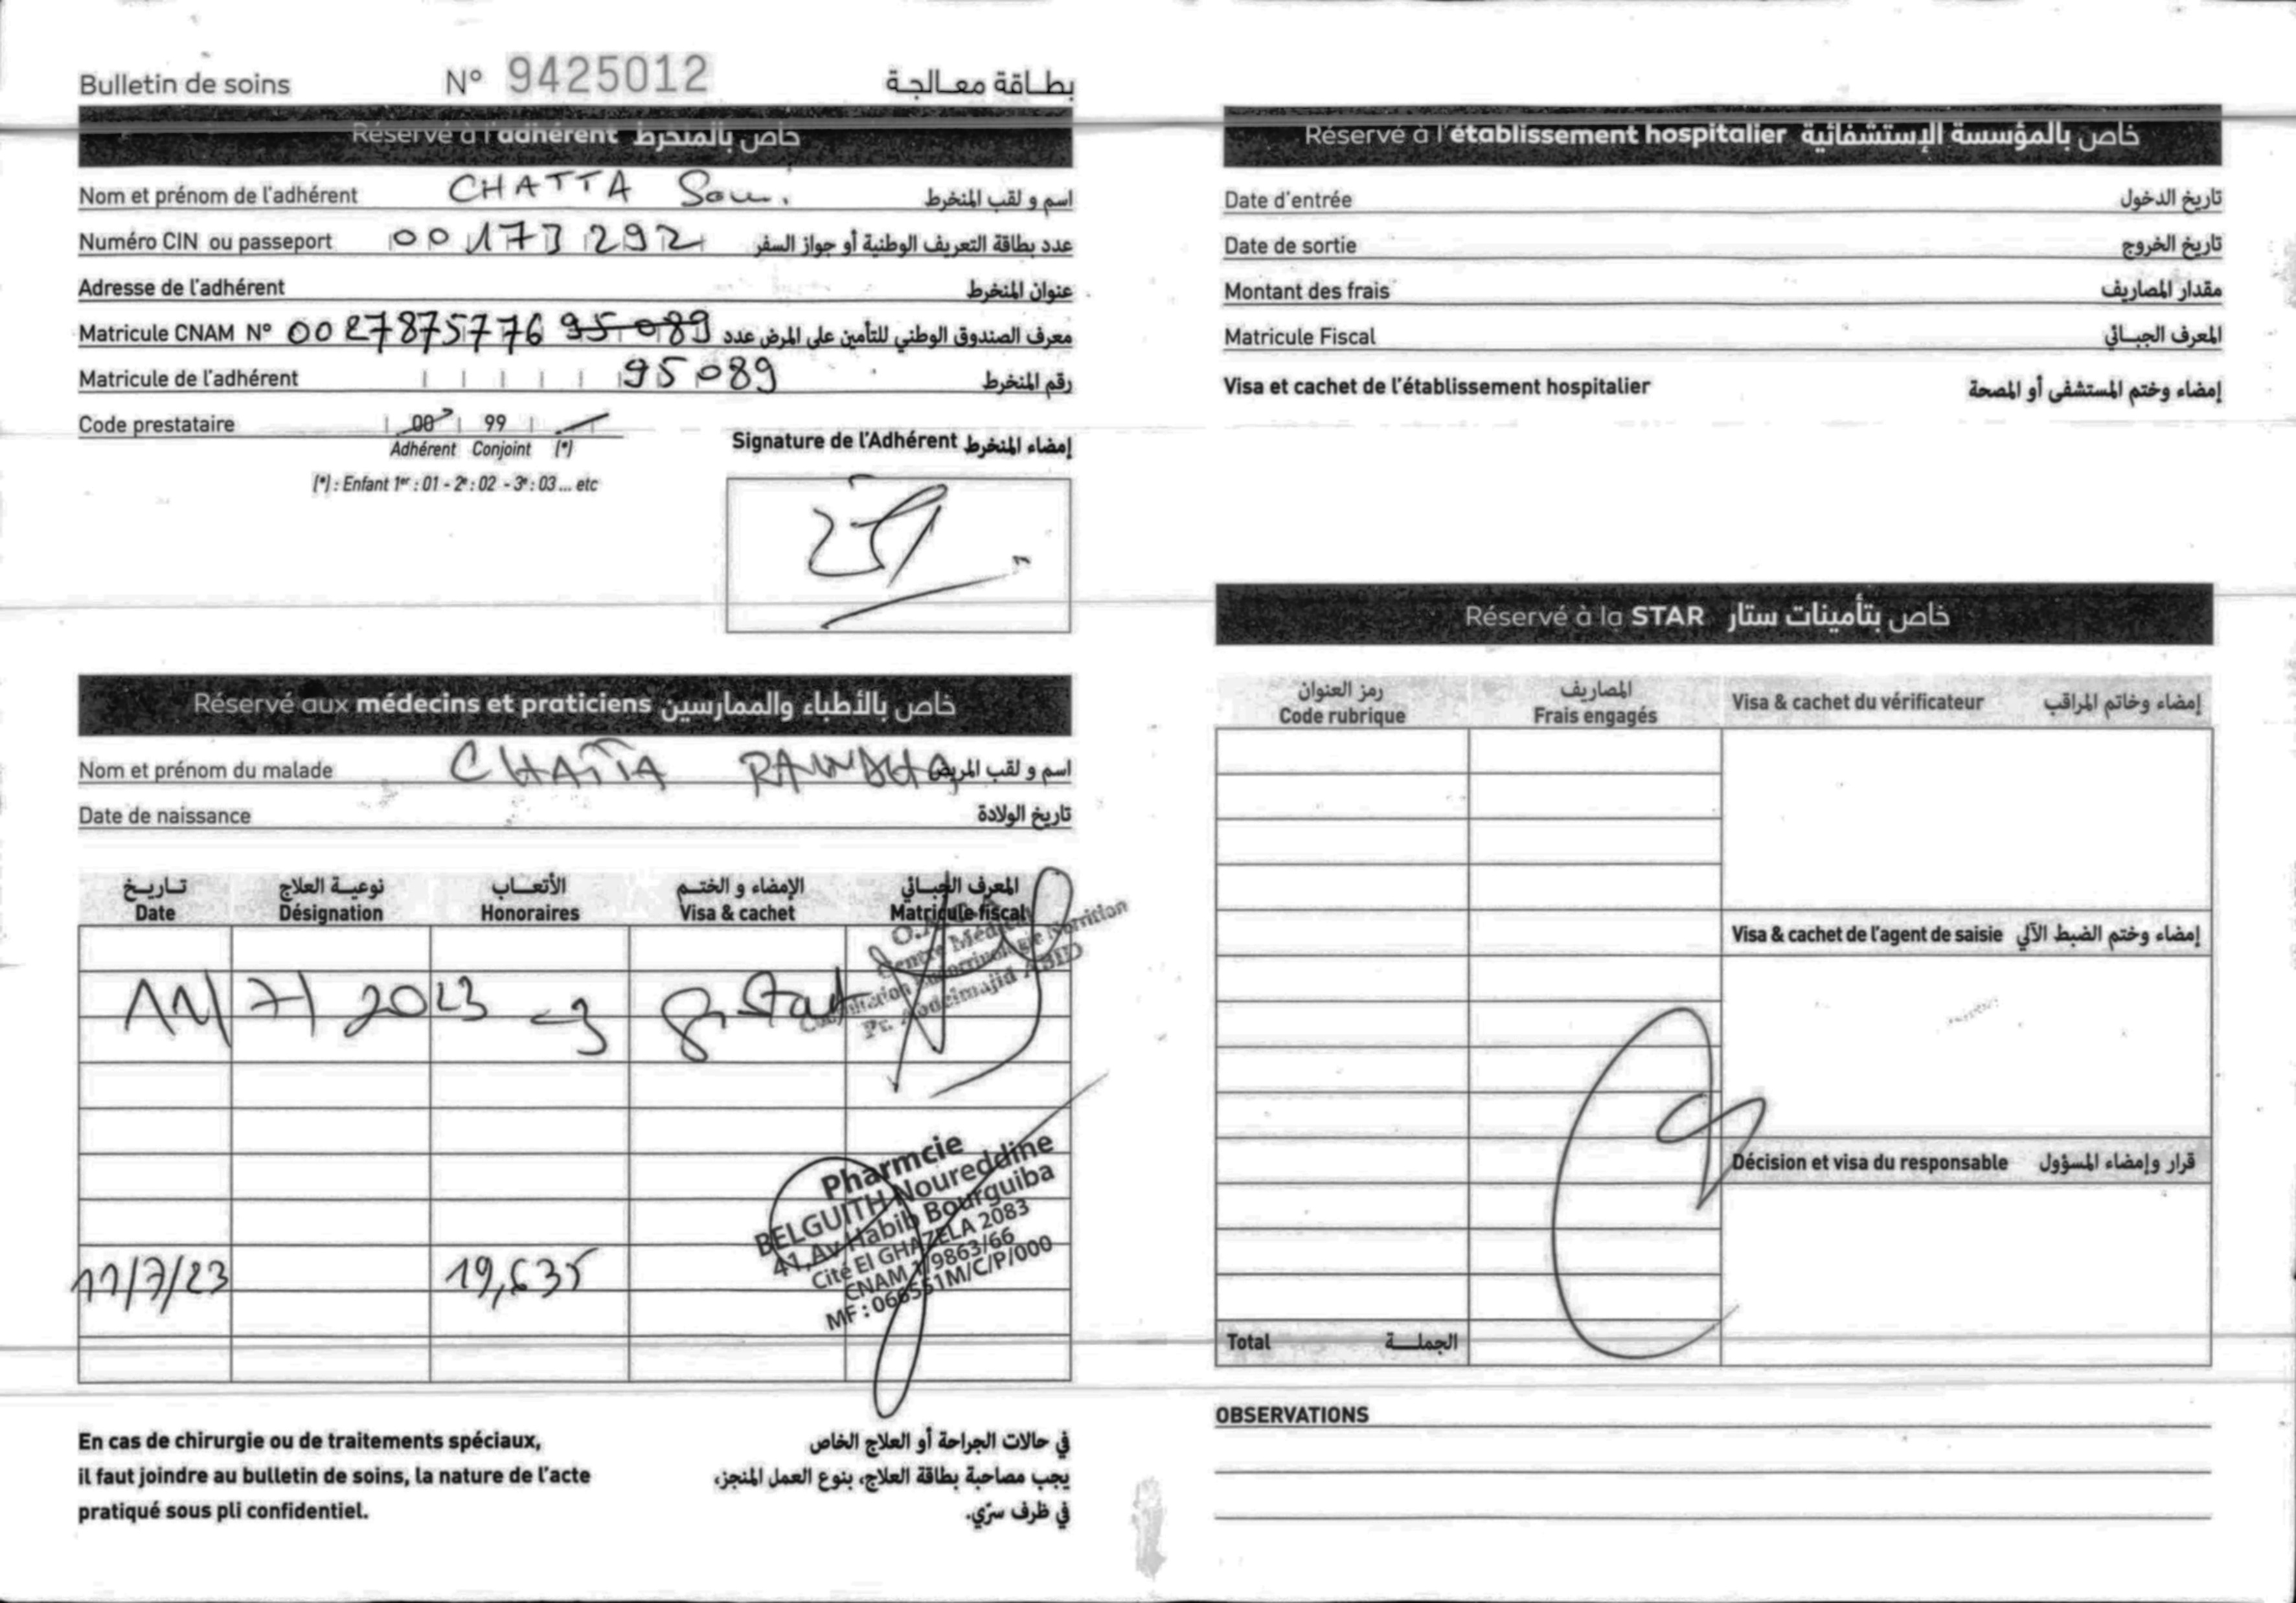 Bulletin de soins N° 9425012 بطاقة معالجة
Réservé à l'adhérent خاص بالمنخرط
Nom et prénom de l'adhérent CHATTA اسم و لقب المنخرط
Numéro CIN ou passeport 00173292 عدد بطاقة التعريف الوطنية أو جواز السفر
Adresse de l'adhérent عنوان المنخرط
Matricule CNAM N° 002787577695089 معرف الصندوق الوطني للتأمين على المرض عدد
Matricule de l'adhérent 95089 رقم المنخرط
Code prestataire 00 99
Adhérent Conjoint (*)
(*) : Enfant 1er : 01 - 2e : 02 - 3e : 03 ... etc
Signature de l'Adhérent إمضاء المنخرط
Réservé aux médecins et praticiens خاص بالأطباء والممارسين
Nom et prénom du malade CHATTA اسم و لقب المريض
Date de naissance تاريخ الولادة
تاريخ نوعية العلاج الأتعاب الإمضاء و الختم المعرف الجبائي
Date Désignation Honoraires Visa & cachet Matricule fiscal
11/7/2023
Pharmcie
BELGUITH Noureddine
41,Av Habib Bourguiba
Cité El GHAZELA 2083
CNAM 1/9863/66
MF : 066551M/C/P/000
11/7/23 19,635
En cas de chirurgie ou de traitements spéciaux,
il faut joindre au bulletin de soins, la nature de l'acte
pratiqué sous pli confidentiel.
في حالات الجراحة أو العلاج الخاص
يجب مصاحبة بطاقة العلاج، بنوع العمل المنجز،
في ظرف سرّي.
Réservé à l'établissement hospitalier خاص بالمؤسسة الإستشفائية
Date d'entrée تاريخ الدخول
Date de sortie تاريخ الخروج
Montant des frais مقدار المصاريف
Matricule Fiscal المعرف الجبائي
Visa et cachet de l'établissement hospitalier إمضاء وختم المستشفى أو المصحة
Réservé à la STAR خاص بتأمينات ستار
رمز العنوان المصاريف
Code rubrique Frais engagés Visa & cachet du vérificateur إمضاء وخاتم المراقب
Visa & cachet de l'agent de saisie إمضاء وختم الضبط الآلي
Décision et visa du responsable قرار وإمضاء المسؤول
Total الجملة
OBSERVATIONS